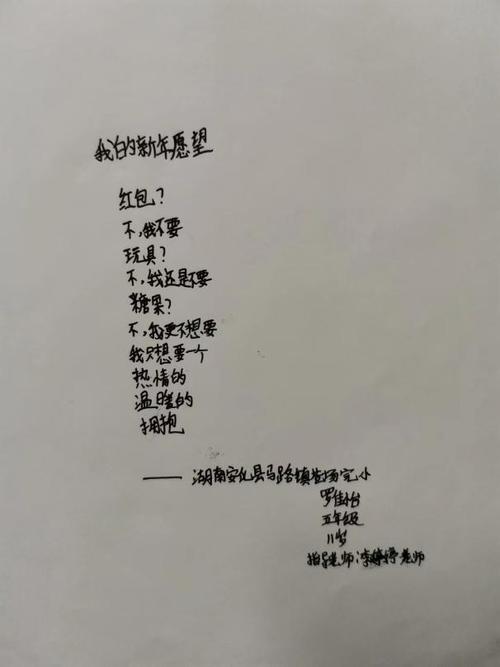 我的新年愿望
红包？
不，我不要
玩具？
不，我还是不要
糖果？
不，我更不想要
我只想要一个
热情的
温暖的
拥抱
——湖南安化县马路镇苍场完小
罗佳怡
五年级
11岁
指导老师：李婷婷老师